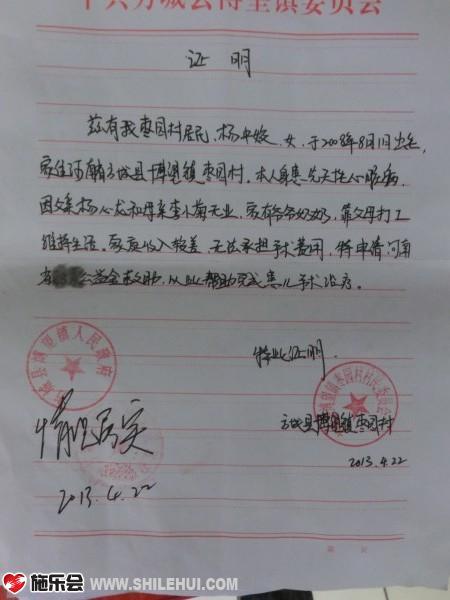 中共方城县博望镇委员会
证明
兹有我枣园村居民,杨 姣,女,于2008年8月1日出生,
家住河南方城县博望镇枣园村。本人身患先天性心脏病,
因父亲杨心龙和母亲李小南无业,家有爷爷奶奶,靠父母打工
维持生活。家庭收入较差,无法承担手术费用,特申请河南
省 公益金救助,从此帮助完成患儿手术治疗。
特此证明
方城县博望镇枣园村
2013.4.22
方城县博望镇人民政府
博望镇枣园村村民委员会
情况属实
2013.4.22
施乐会 WWW.SHILEHUI.COM